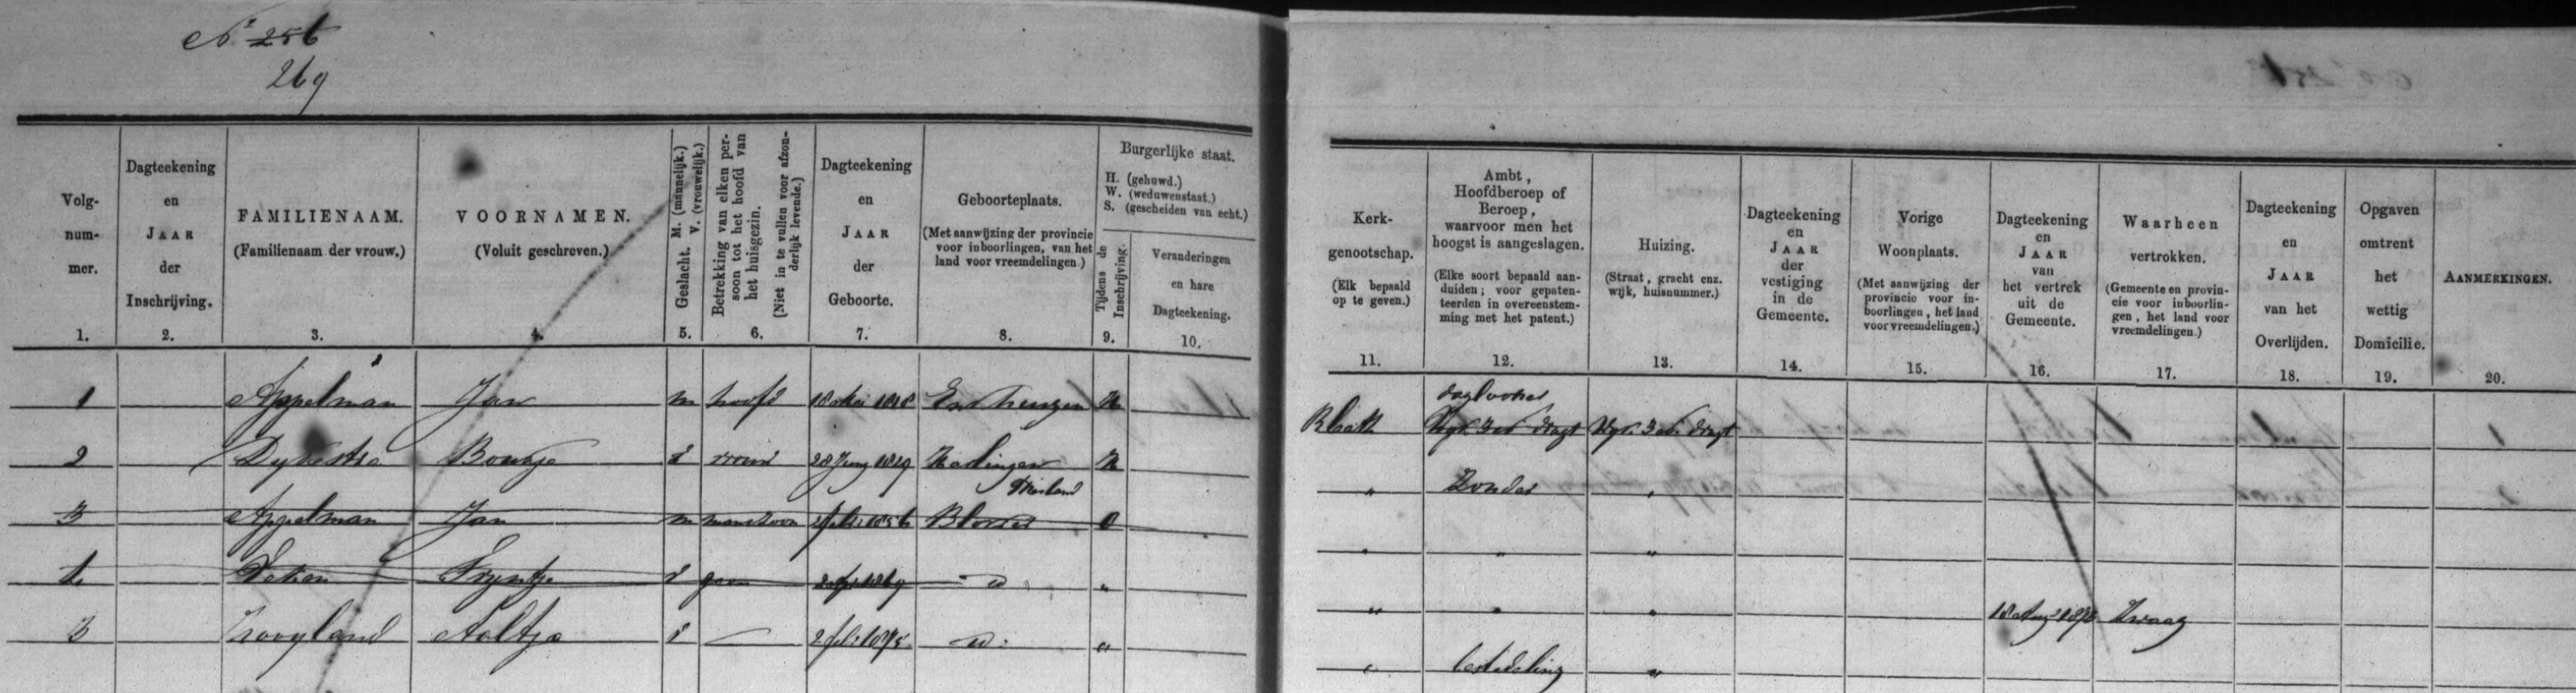 No 256
269
Volgnummer.
Dagteekening en JAAR der Inschrijving.
FAMILIENAAM. (Familienaam der vrouw.)
VOORNAMEN. (Voluit geschreven.)
Geslacht. M. (mannelijk.) V. (vrouwelijk.)
Betrekking van elken persoon tot het hoofd van het huisgezin. (Niet in te vullen voor afzonderlijk levende.)
Dagteekening en JAAR der Geboorte.
Geboorteplaats. (Met aanwijzing der provincie voor inboorlingen, van het land voor vreemdelingen.)
Burgerlijke staat.
H. (gehuwd.)
W. (weduwenstaat.)
S. (gescheiden van echt.)
Tijdens de Inschrijving.
Veranderingen en hare Dagteekening.
Kerkgenootschap. (Elk bepaald op te geven.)
Ambt, Hoofdberoep of Beroep, waarvoor men het hoogst is aangeslagen. (Elke soort bepaald aanduiden; voor gepatenteerden in overeenstemming met het patent.)
Huizing. (Straat, gracht enz. wijk, huisnummer.)
Dagteekening en JAAR der vestiging in de Gemeente.
Vorige Woonplaats. (Met aanwijzing der provincie voor inboorlingen, het land voor vreemdelingen.)
Dagteekening en JAAR van het vertrek uit de Gemeente.
Waarheen vertrokken. (Gemeente en provincie voor inboorlingen, het land voor vreemdelingen.)
Dagteekening en JAAR van het Overlijden.
Opgaven omtrent het wettig Domicilie.
AANMERKINGEN.
1. 2. 3. 4. 5. 6. 7. 8. 9. 10. 11. 12. 13. 14. 15. 16. 17. 18. 19. 20.
daglooner
1 Appelman Jan m hoofd 18 Mei 1818 Enkhuizen H
2 Dykstra Boukje v vrouw 28 1829 Harlingen H Zonder "
Friesland
3 Appelman Jan m manszoon 1856 " " "
v 1869 " " " " 18 Aug 1893 Zwaag
3 Hooyland Aaltje v 1875 " " besteding "